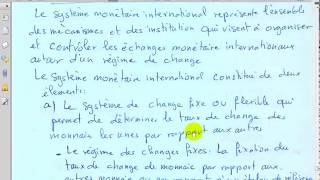 Le système monétaire international représente l'ensemble
des mécanismes et des institution qui visent à organiser
et contrôler les échanges monétaire internationaux
autour d'un régime de change
Le système monétaire international constitué de deux
élément:
a) Le système de change fixe ou flexible qui
permet de déterminer le taux de change des
monnais les unes par rapport aux autres
- Le régime des changes fixes: La fixation du
taux de change de monnaie par rapport aux
autres monnaie ou